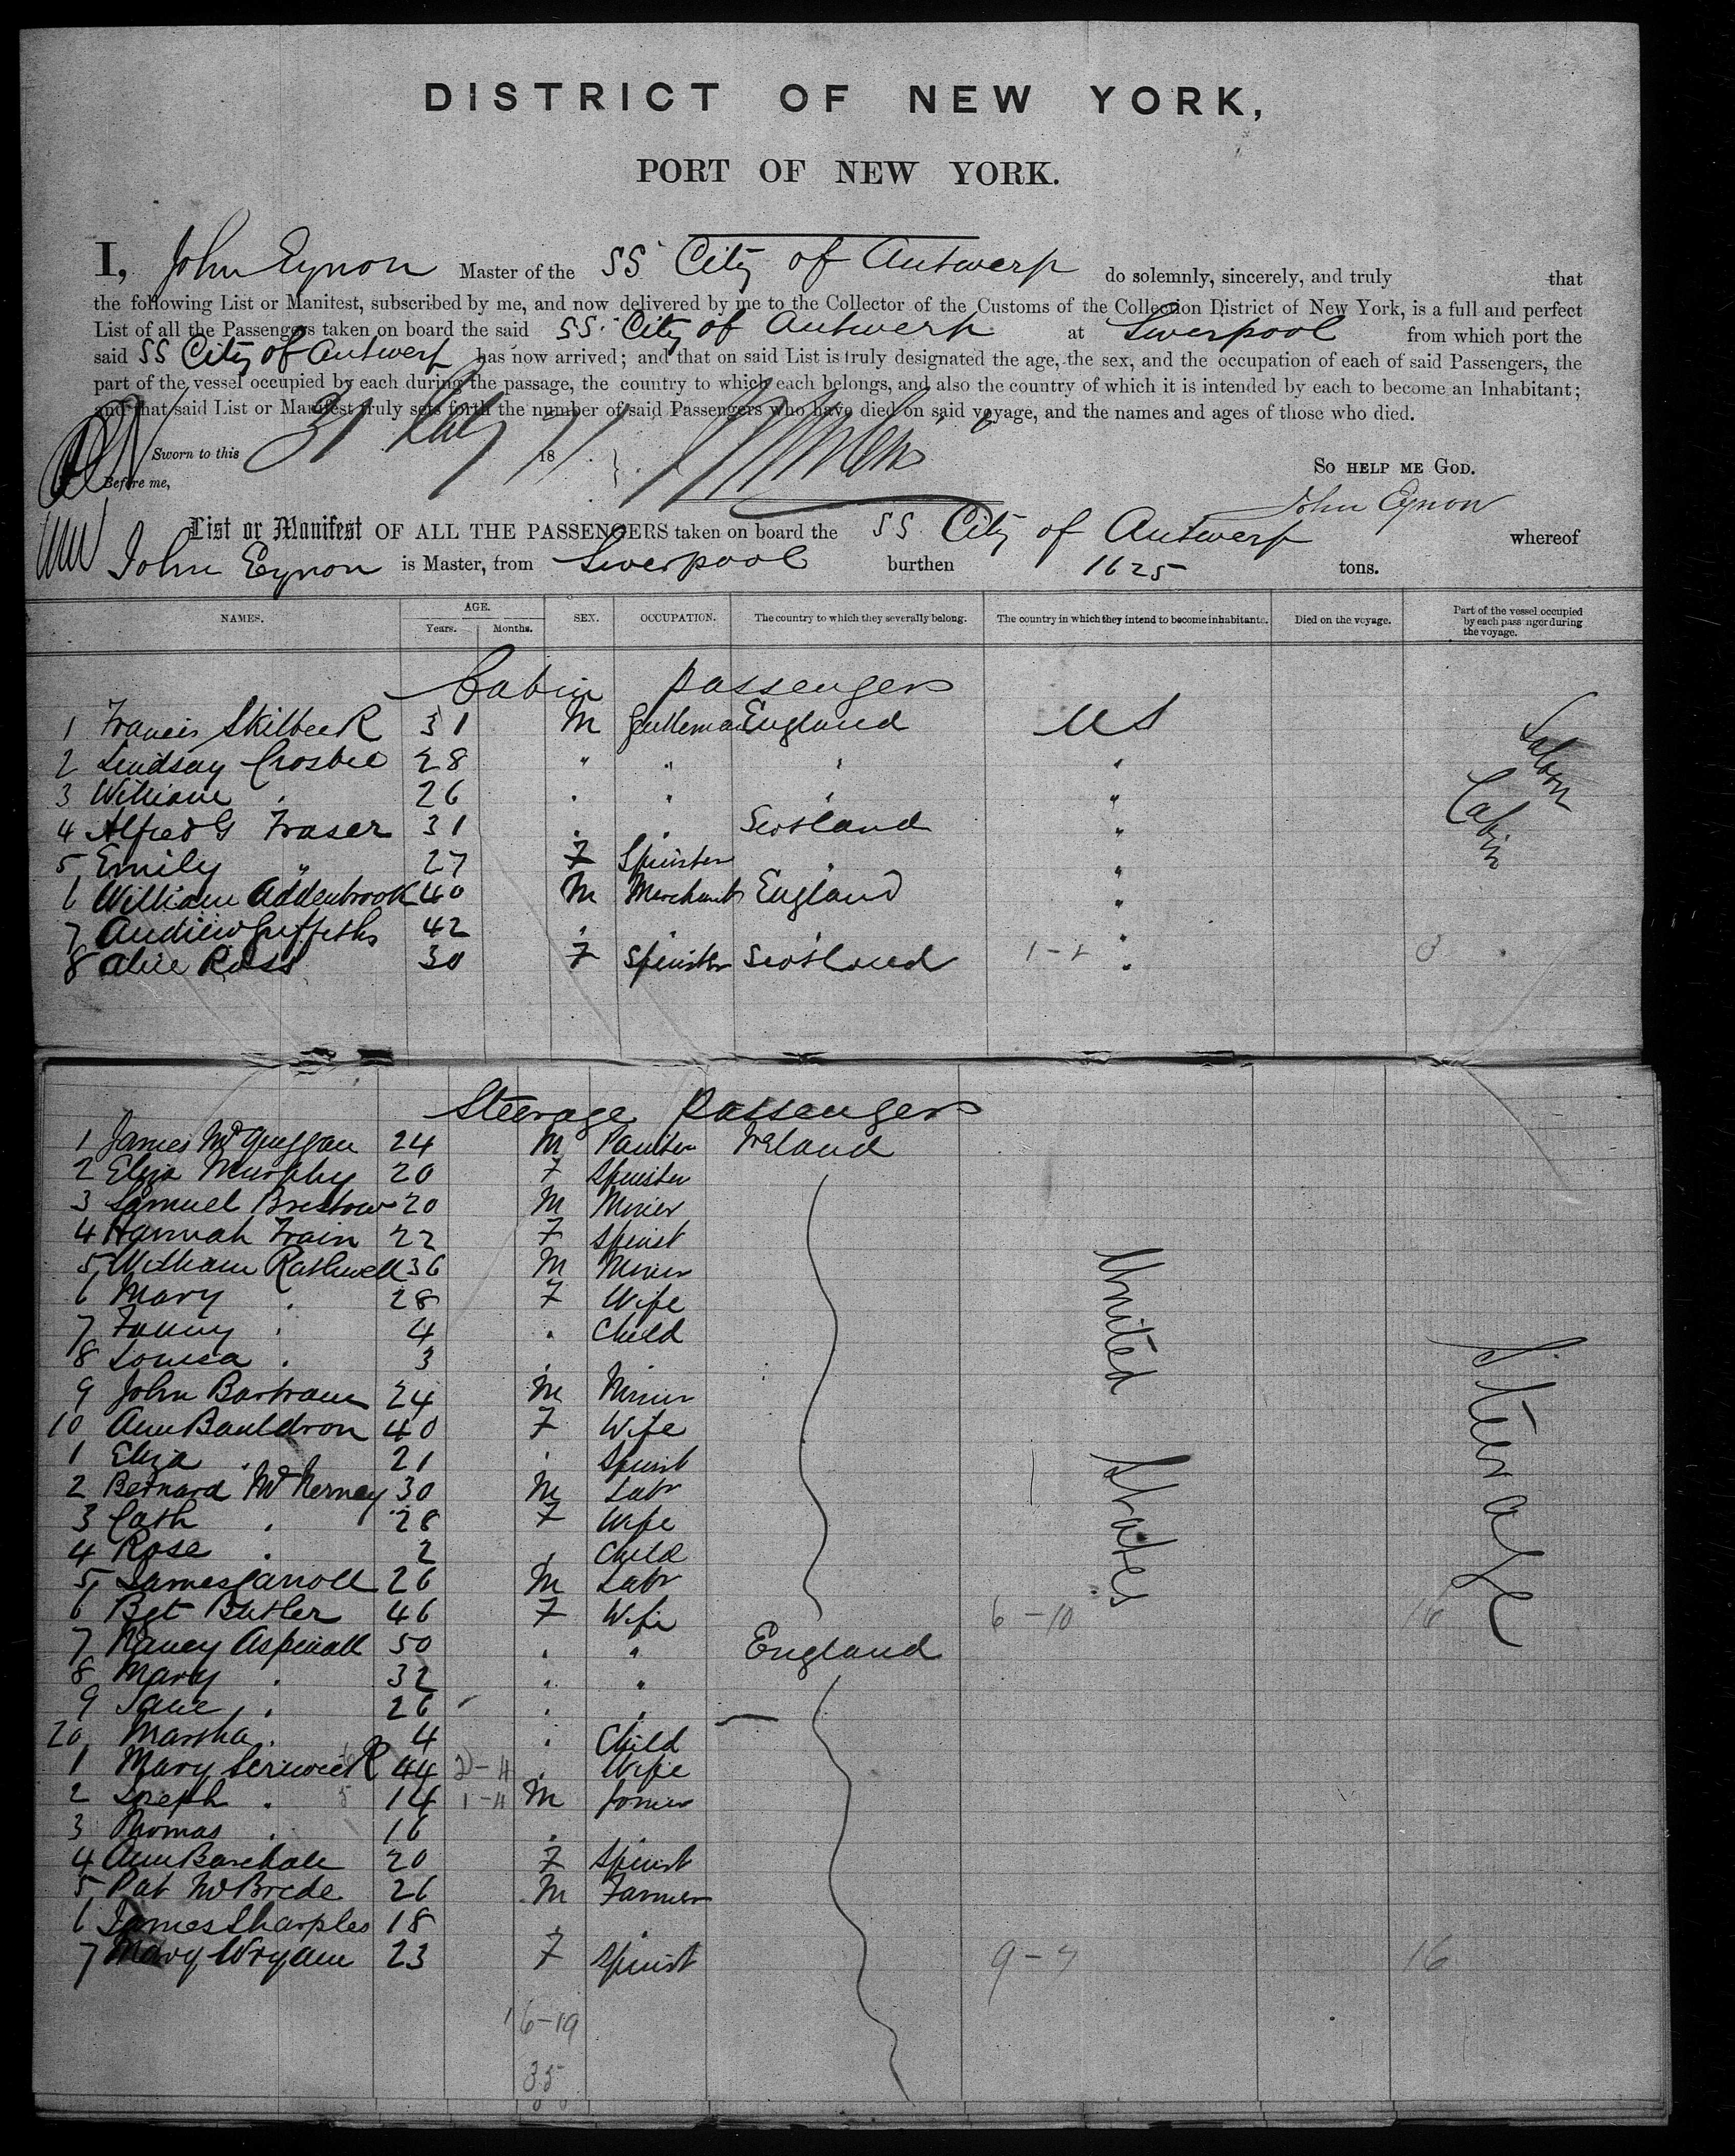 DISTRICT OF NEW YORK,
PORT OF NEW YORK.
I, John Eynon Master of the SS City of Antwerp do solemnly, sincerely, and truly that
the following List or Manifest, subscribed by me, and now delivered by me to the Collector of the Customs of the Collection District of New York, is a full and perfect
List of all the Passengers taken on board the said SS. City of Antwerp at Liverpool from which port the
said SS City of Antwerp has now arrived; and that on said List is truly designated the age, the sex, and the occupation of each of said Passengers, the
part of the vessel occupied by each during the passage, the country to which each belongs, and also the country of which it is intended by each to become an Inhabitant;
and that said List or Manifest truly sets forth the number of said Passengers who have died on said voyage, and the names and ages of those who died.
Sworn to this 31 July 1871
So HELP ME GOD.
Before me,
John Eynon
List or Manifest OF ALL THE PASSENGERS taken on board the SS. City of Antwerp whereof
John Eynon is Master, from Liverpool burthen 1625 tons.
NAMES. AGE. Years. Months. SEX. OCCUPATION. The country to which they severally belong. The country in which they intend to become inhabitants. Died on the voyage. Part of the vessel occupied by each passenger during the voyage.
Cabin passengers
1 Francis Skilbeck 31 M Gentleman England US
2 Lindsay Crosbie 28 " " " "
3 William " 26 " " " "
4 Alfred G Fraser 31 " " Scotland "
5 Emily " 27 F Spinster " "
6 William Addenbrook 40 M Merchant England "
7 Andrew Griffiths 42 " " " "
8 Alice Ross 30 F Spinster Scotland "
Saloon Cabin
Steerage passengers
1 James McGuggan 24 M Painter Ireland
2 Eliza Murphy 20 F Spinster
3 Samuel Bristow 20 M Miner
4 Hannah Train 22 F Spinst
5 William Rathwell 36 M Miner
6 Mary " 28 F Wife
7 Fanny " 4 " Child
8 Louisa " 3 "
9 John Bartram 24 M Miner
10 Ann Bauldron 40 F Wife
1 Eliza " 21 " Spinst
2 Bernard McNerney 30 M Labr
3 Cath " 28 F Wife
4 Rose " 2 " Child
5 James Carroll 26 M Labr
6 Bgt Butler 46 F Wife 6-10 16
7 Nancy Aspinall 50 " " England
8 Mary " 32 " "
9 Jane " 26 " "
20 Martha " 4 " Child
1 Mary 44 " Wife
2 Joseph " 14 1-11 M Joiner
3 Thomas " 16 "
4 Ann 20 F Spinst
5 Pat McBride 26 M Farmer
6 James Sharples 18 " "
7 Mary 23 F Spinst 9-7 16
United States
Steerage
16-19
35